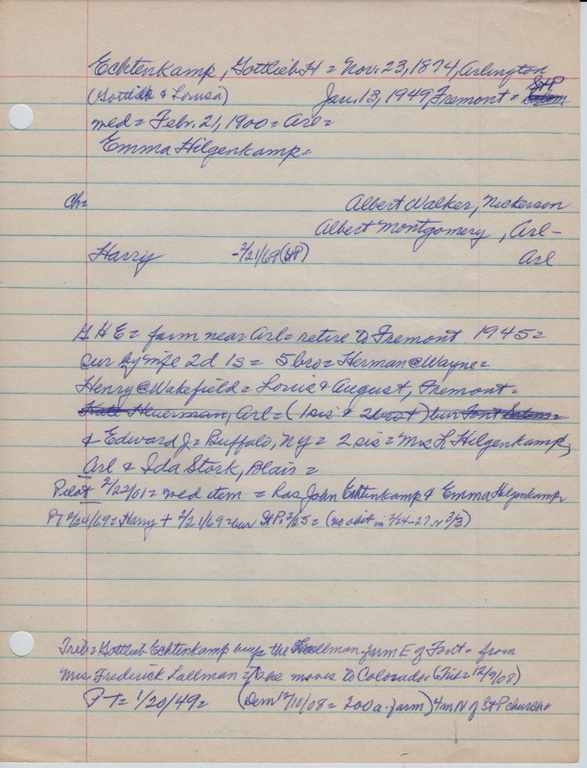 Echtenkamp, Gottlieb H = Nov. 23, 1874, Arlington
(Gottlieb & Louisa) Jan. 13, 1949, Fremont = St P
med = Febr. 21, 1900 = Arl =
Emma Hilgenkamp =
Albert Walker, Nickerson
Ch = Albert Montgomery, Arl -
Harry - 2/21/69 (St P) Arl
G H E = farm near Arl = retire to Fremont 1945 =
sur by wife 2d 1s = 5 bro = Herman @ Wayne =
Henry @ Wakefield = Louis & August, Fremont =
Kate Heuerman, Arl = (1 sis &
& Edward J = Buffalo, NY = 2 sis = Mrs L Hilgenkamp,
Arl & Ida Stork, Blair =
Pilot 2/22/01 = med item = has John Echtenkamp & Emma Hilgenkamp
FT 2/24/69 = Harry + 2/21/69 = bur St P = 2/25 = (no obit in 2/24-27 or 3/3)
Trib = Gottlieb Echtenkamp buys the Lallman farm E of Font = from
Mrs Frederick Lallman = she moves to Colorado = (Trib = 12/9/08)
FT = 1/20/49 = (Dem 12/10/08 = 200 a. farm) 4 m N of St P church =